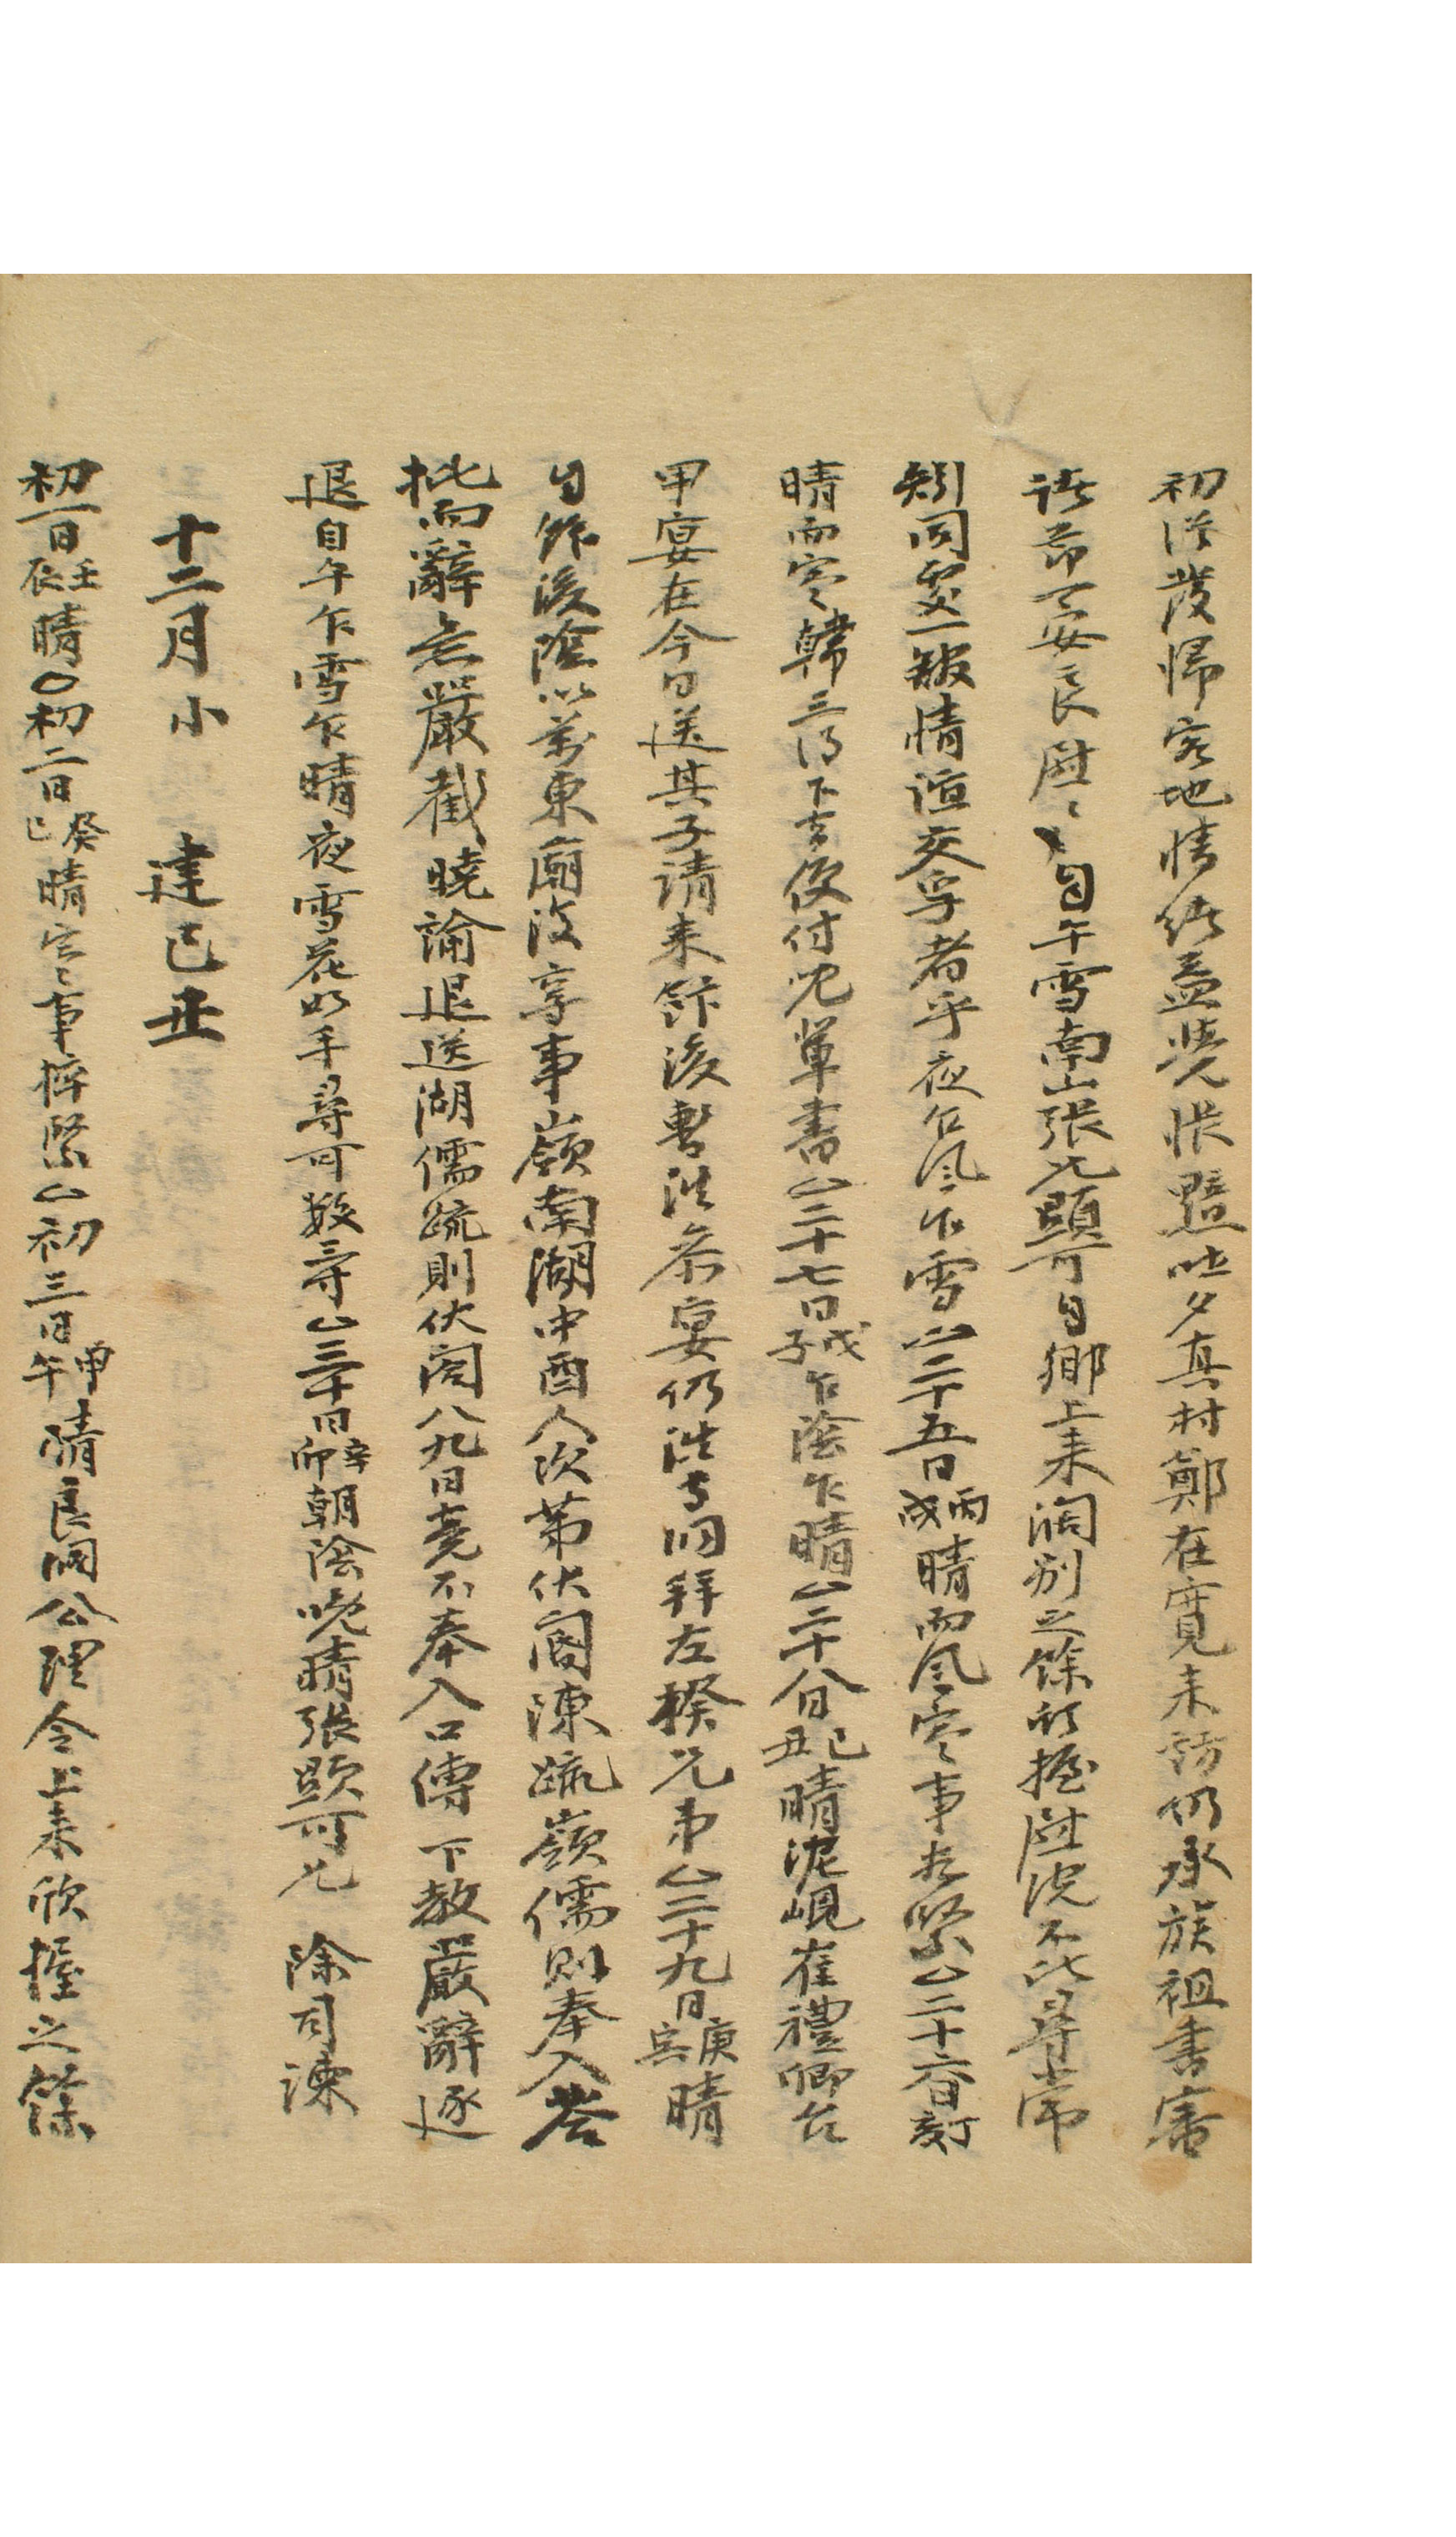 初從後歸客地情緖益覺悵黯昏夕眞村鄭在寬來訪仍承族祖書審
諸節万安良慰〻自午雪南山張兄顯可自鄕上來阔別之餘欣握慰浣不比尋常
矧同處一舘情誼交孚者乎夜乍風乍雪△二十五日丙戌晴而風寒事甚緊△二十六日丁亥
晴而寒韓三淂下去便付兒輩書△二十七日戊子乍陰乍晴△二十八日己丑晴泥峴崔禮卿台
甲宴在今日送其子請來飯後暫徃參宴仍徃歸拜左揆兄弟△二十九日庚寅晴
自飯後陰以万東廟復享事嶺南湖中酉人次苐伏閤陳疏嶺儒則奉入荅
批而辭無嚴截曉諭退送湖儒疏則伏閤八九日竟不奉入口傳下敎嚴辭逐
退自午乍雪乍晴夜雪花如手尋可數寸△三十日辛卯朝陰晩晴張顯可兄 除司諫
十二月小 建己丑
初一日壬辰晴○初二日癸巳晴寒〻事推緊△初三日甲午晴良洞公理令上來欣握之餘